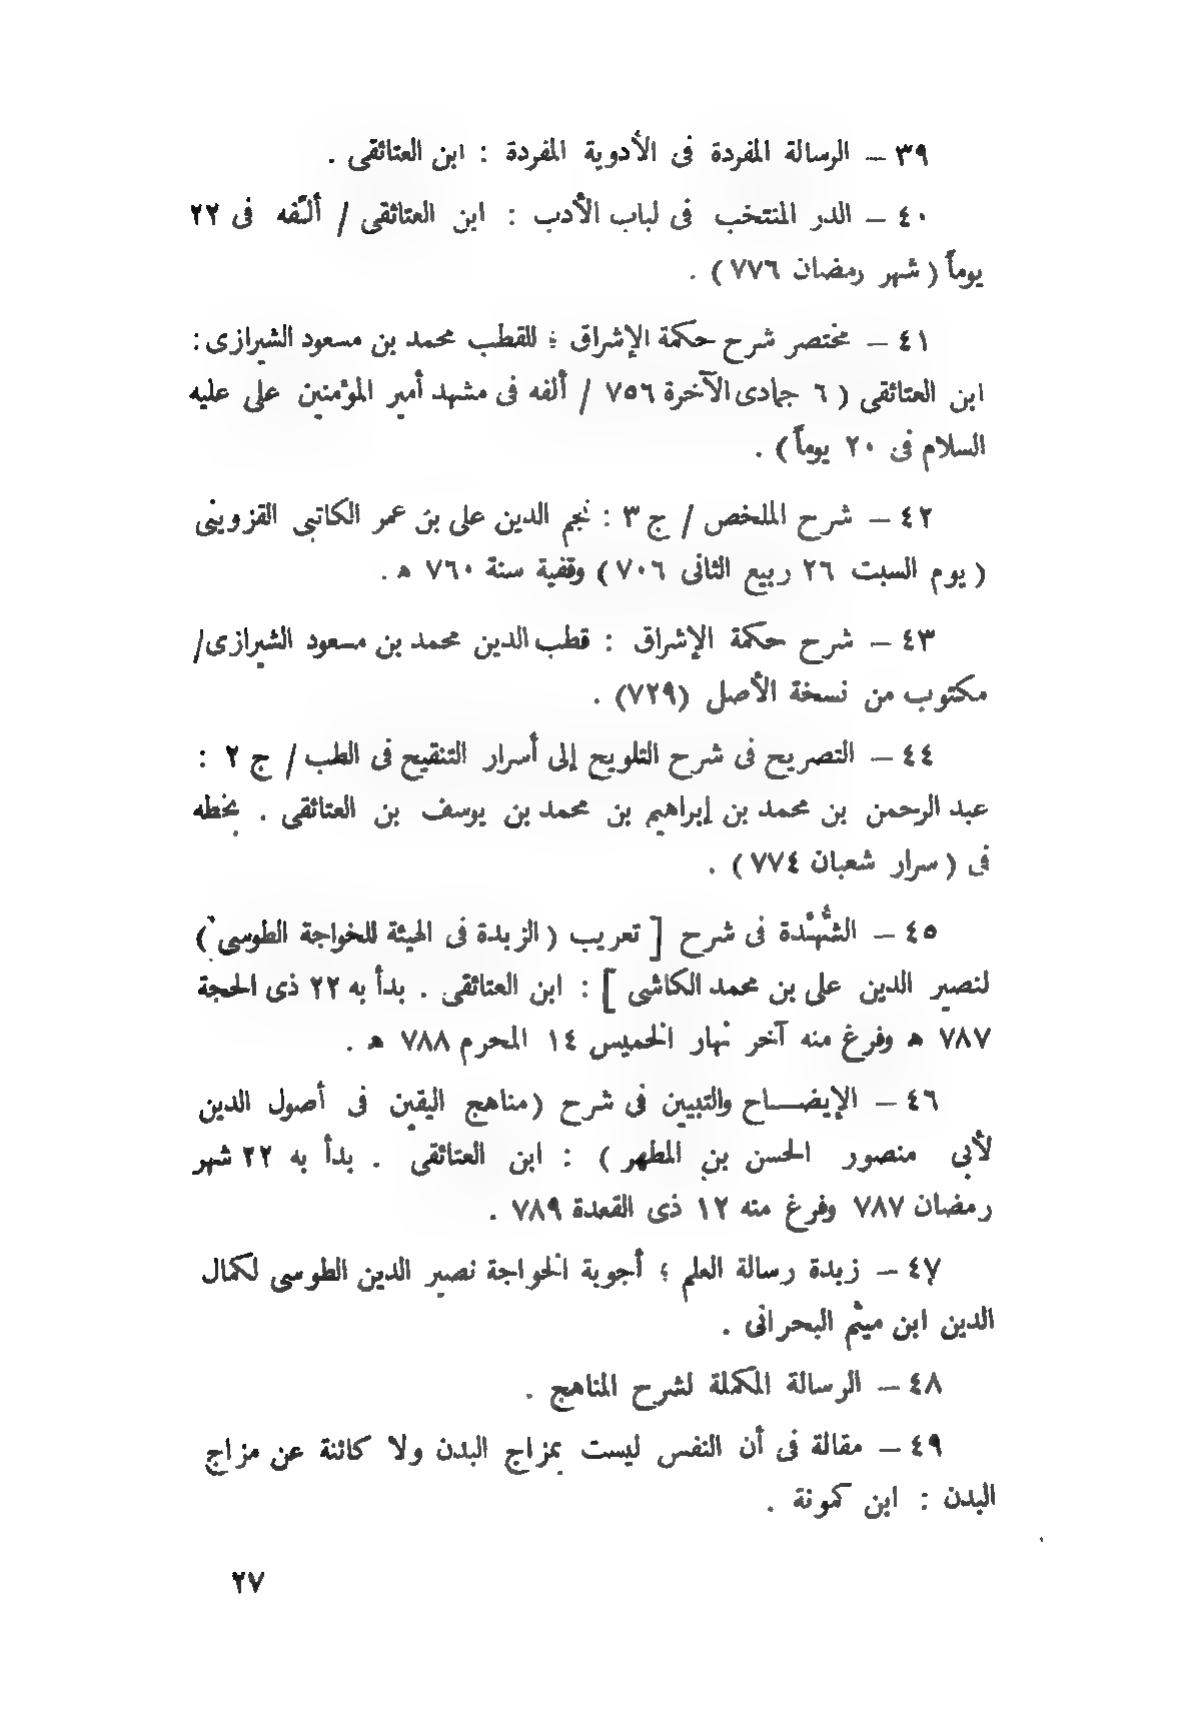 ٣٩ – الرسالة المفردة فى الأدوية المفردة : ابن العتائقى .
٤٠ – الدر المنتخب فى لباب الأدب : ابن العتائقى / ألّفه فى ٢٢
يوماً ( شهر رمضان ٧٧٦ ) .
٤١ – مختصر شرح حكمة الإشراق ؛ للقطب محمد بن مسعود الشيرازى :
ابن العتائقى ( ٦ جمادى الآخرة ٧٥٦ / ألفه فى مشهد أمير المؤمنين على عليه
السلام فى ٢٠ يوماً ) .
٤٢ – شرح الملخص / ج ٣ : نجم الدين على بن عمر الكاتبى القزوينى
( يوم السبت ٢٦ ربيع الثانى ٧٠٦ ) وقفية سنة ٧٦٠ ه .
٤٣ – شرح حكمة الإشراق : قطب الدين محمد بن مسعود الشيرازى /
مكتوب من نسخة الأصل (٧٢٩) .
٤٤ – التصريح فى شرح التلويح إلى أسرار التنقيح فى الطب / ج ٢ :
عبد الرحمن بن محمد بن إبراهيم بن محمد بن يوسف بن العتائقى . بخطه
فى ( سرار شعبان ٧٧٤ ) .
٤٥ – الشُّهْدة فى شرح [ تعريب ( الزبدة فى الهيئة للخواجة الطوسى )
لنصير الدين على بن محمد الكاشى ] : ابن العتائقى . بدأ به ٢٢ ذى الحجة
٧٨٧ ه وفرغ منه آخر نهار الخميس ١٤ المحرم ٧٨٨ ه .
٤٦ – الإيضــاح والتبيين فى شرح ( مناهج اليقين فى أصول الدين
لأبى منصور الحسن بن المطهر ) : ابن العتائقى . بدأ به ٢٢ شهر
رمضان ٧٨٧ وفرغ منه ١٢ ذى القعدة ٧٨٩ .
٤٧ – زبدة رسالة العلم ؛ أجوبة الخواجة نصير الدين الطوسى لكمال
الدين ابن ميثم البحرانى .
٤٨ – الرسالة المكملة لشرح المناهج .
٤٩ – مقالة فى أن النفس ليست بمزاج البدن ولا كائنة عن مزاج
البدن : ابن كمونة .
٢٧